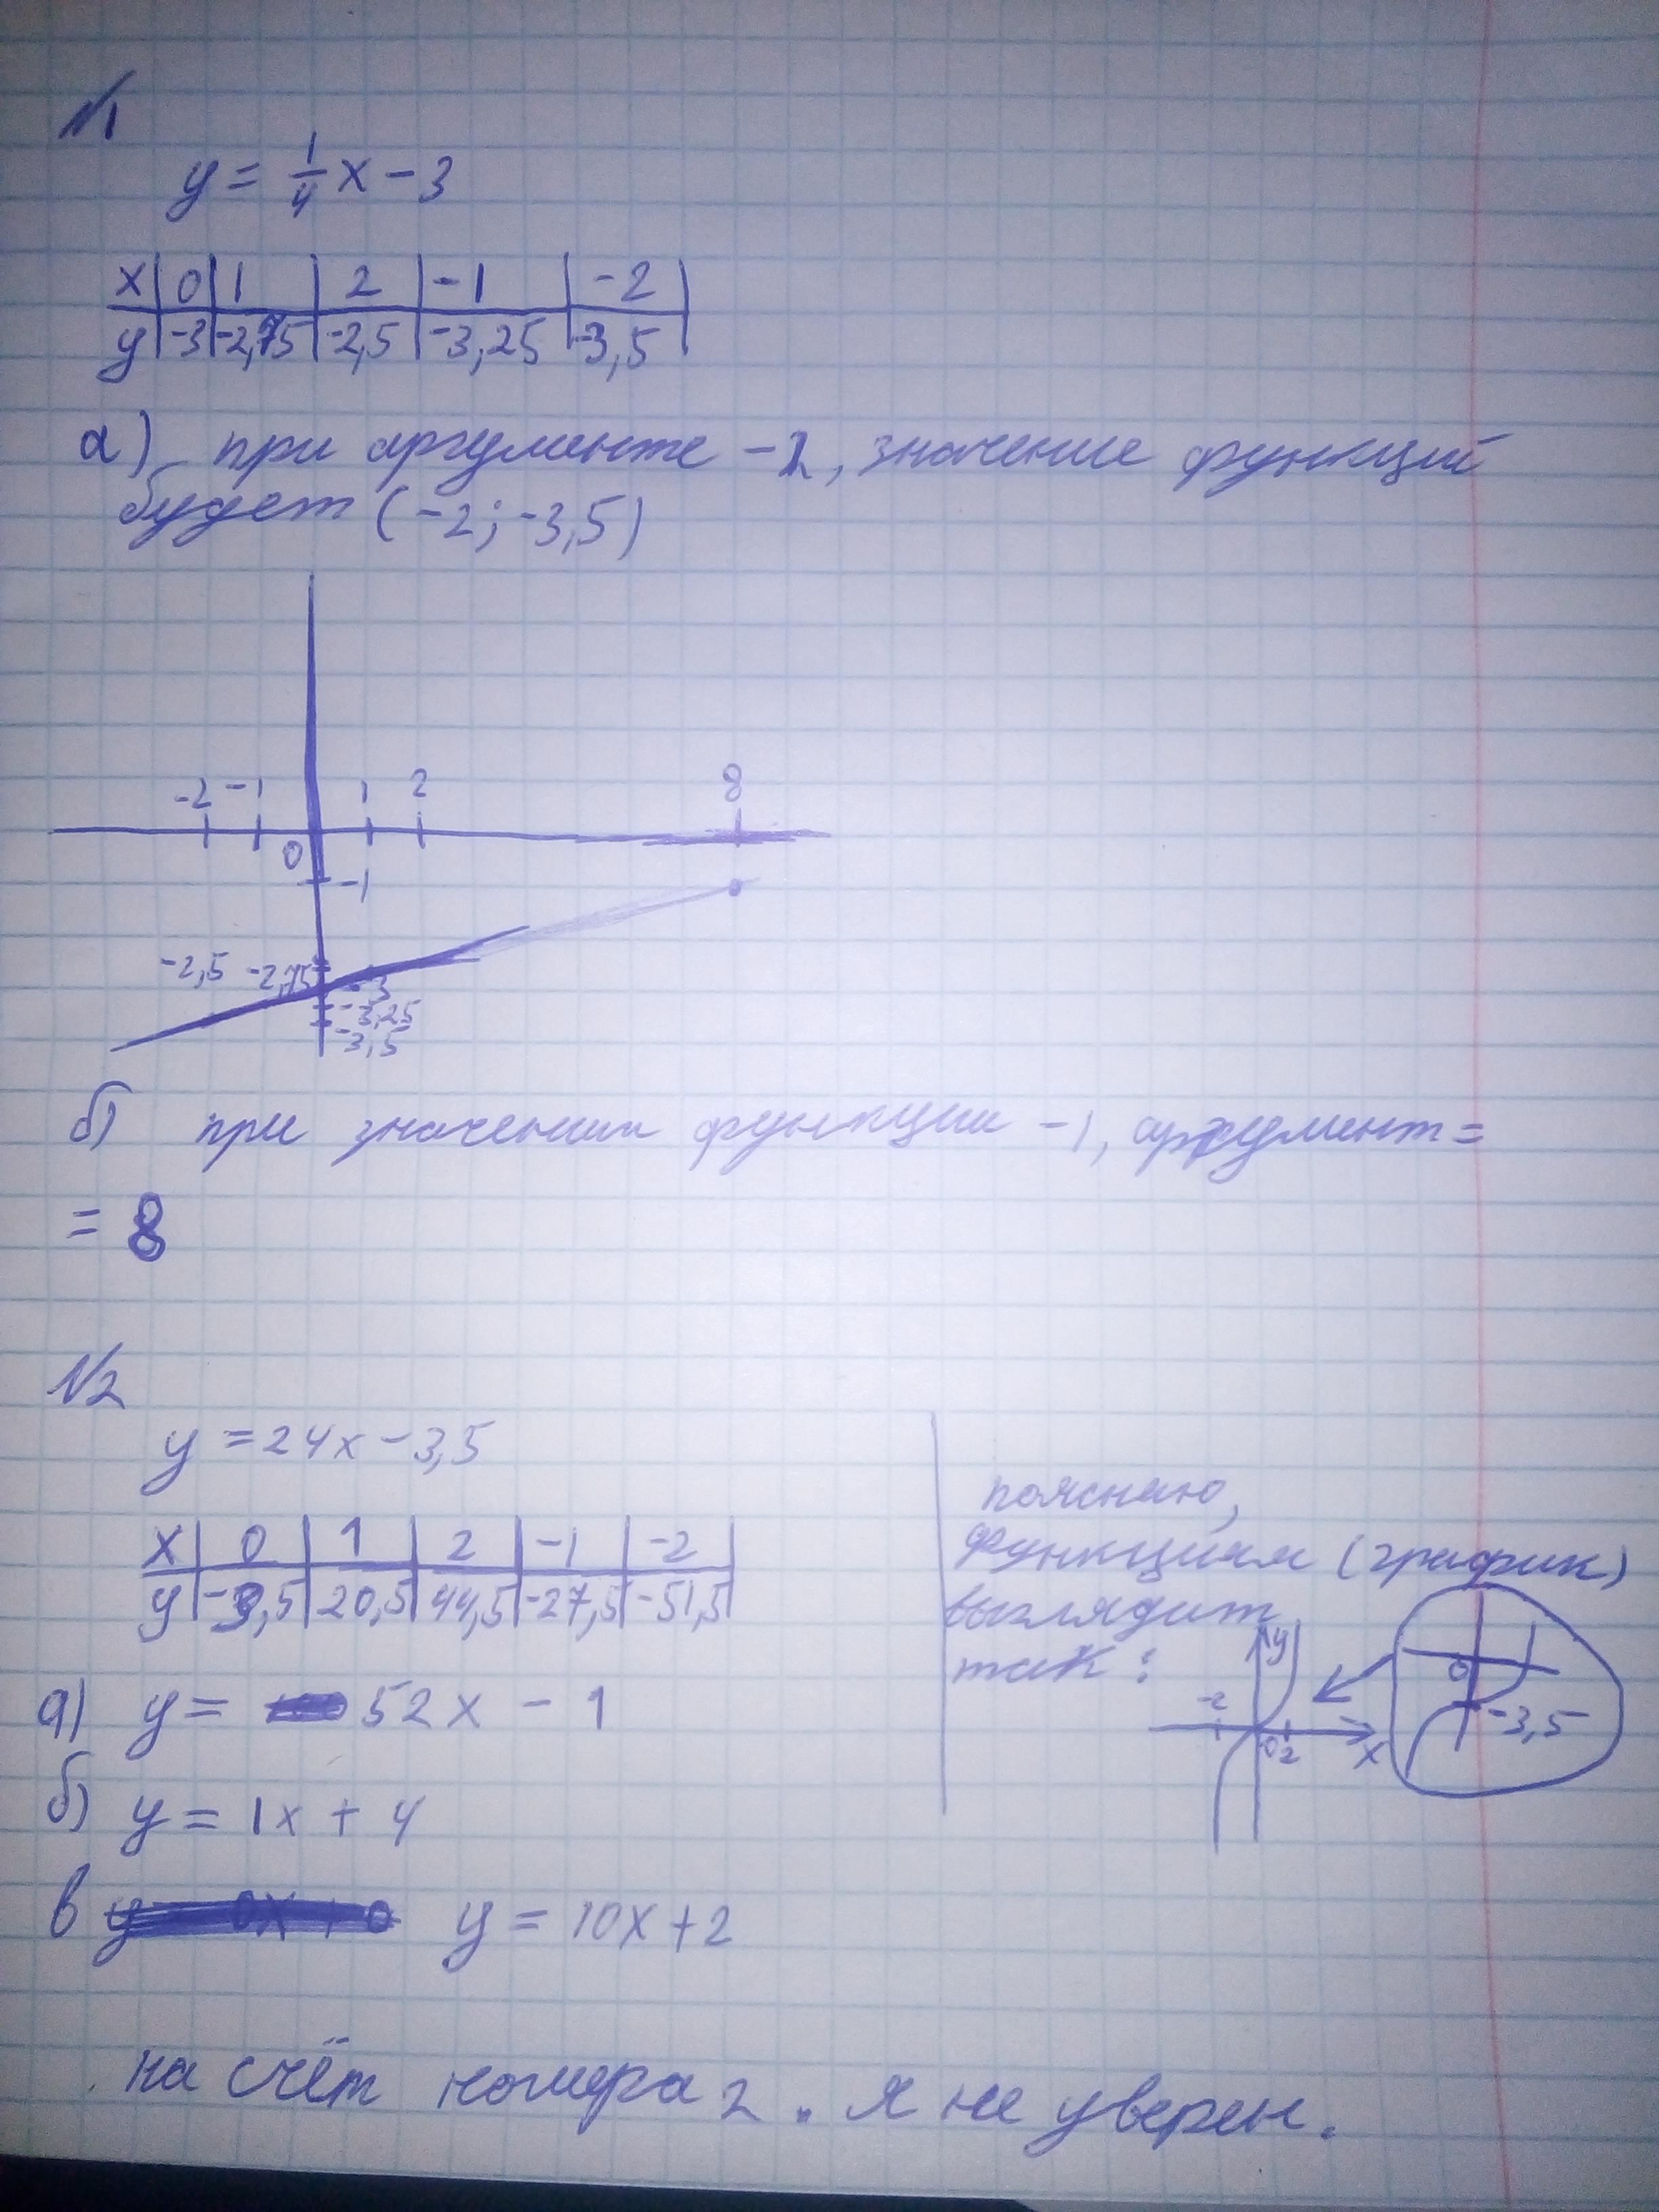 №1
y = 1/4 x - 3
x | 0 | 1 | 2 | -1 | -2
y | -3 | -2,75 | -2,5 | -3,25 | -3,5
а) при аргументе -2, значение функций
будет (-2; -3,5)
-2 -1 1 2 8
0
-1
-2,5 -2,75 -3
-3,25
-3,5
б) при значении функции -1, аргумент =
= 8
№2
y = 24x - 3,5
x | 0 | 1 | 2 | -1 | -2
y | -3,5 | 20,5 | 44,5 | -27,5 | -51,5
а) y = 52x - 1
б) y = 1x + 4
в y = 10x + 2
поясняю,
функциям (график)
выглядит
так:
y
-2 0 2 x
0
-3,5
на счёт номера 2. я не уверен.